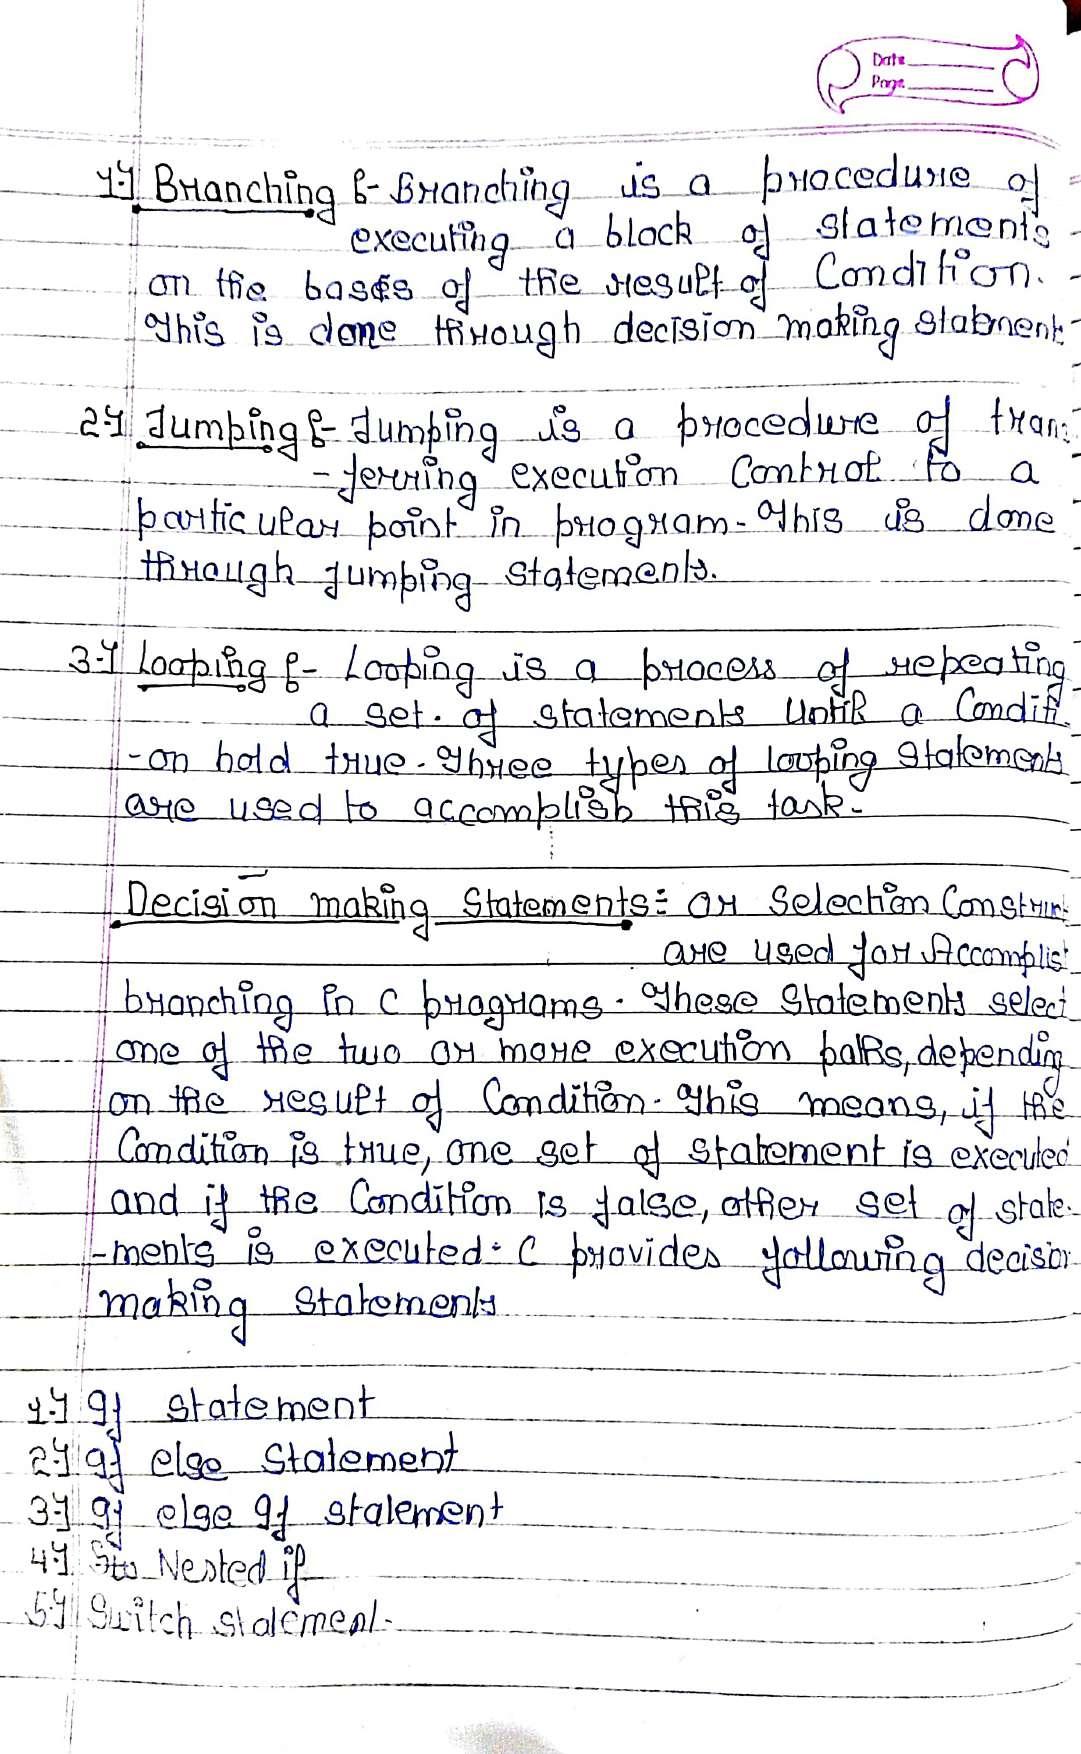 Date
Page
1.) Branching :- Branching is a procedure of
executing a block of statements
on the basis of the result of Condition.
This is done through decision making statment
2.) Jumping :- Jumping is a procedure of trans
-ferring execution Control to a
particular point in program. This is done
through jumping statements.
3.) Looping :- Looping is a process of repeating
a set of statements Until a Conditi
-on hold true. Three types of looping statements
are used to accomplish this task.
Decision making Statements: or Selection Construct
are used for Accomplish
branching in C programs. These Statements select
one of the two or more execution paths, depending
on the result of Condition. This means, if the
Condition is true, one set of statement is executed
and if the Condition is false, other set of state-
-ments is executed. C provides following decision
making statements
1.) If statement
2.) If else Statement
3.) If else If statement
4.) Nested if
5.) Switch statement.